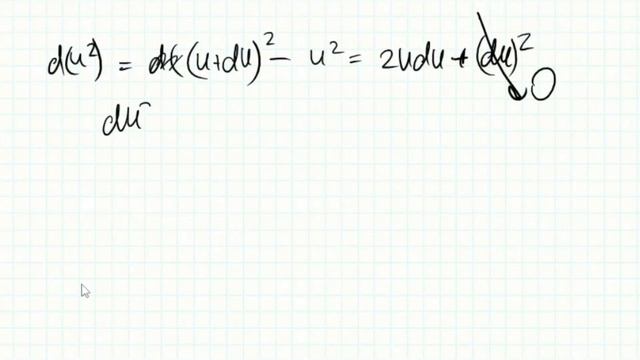 d(u²) = (u+du)² - u² = 2udu + (du)² 0
du